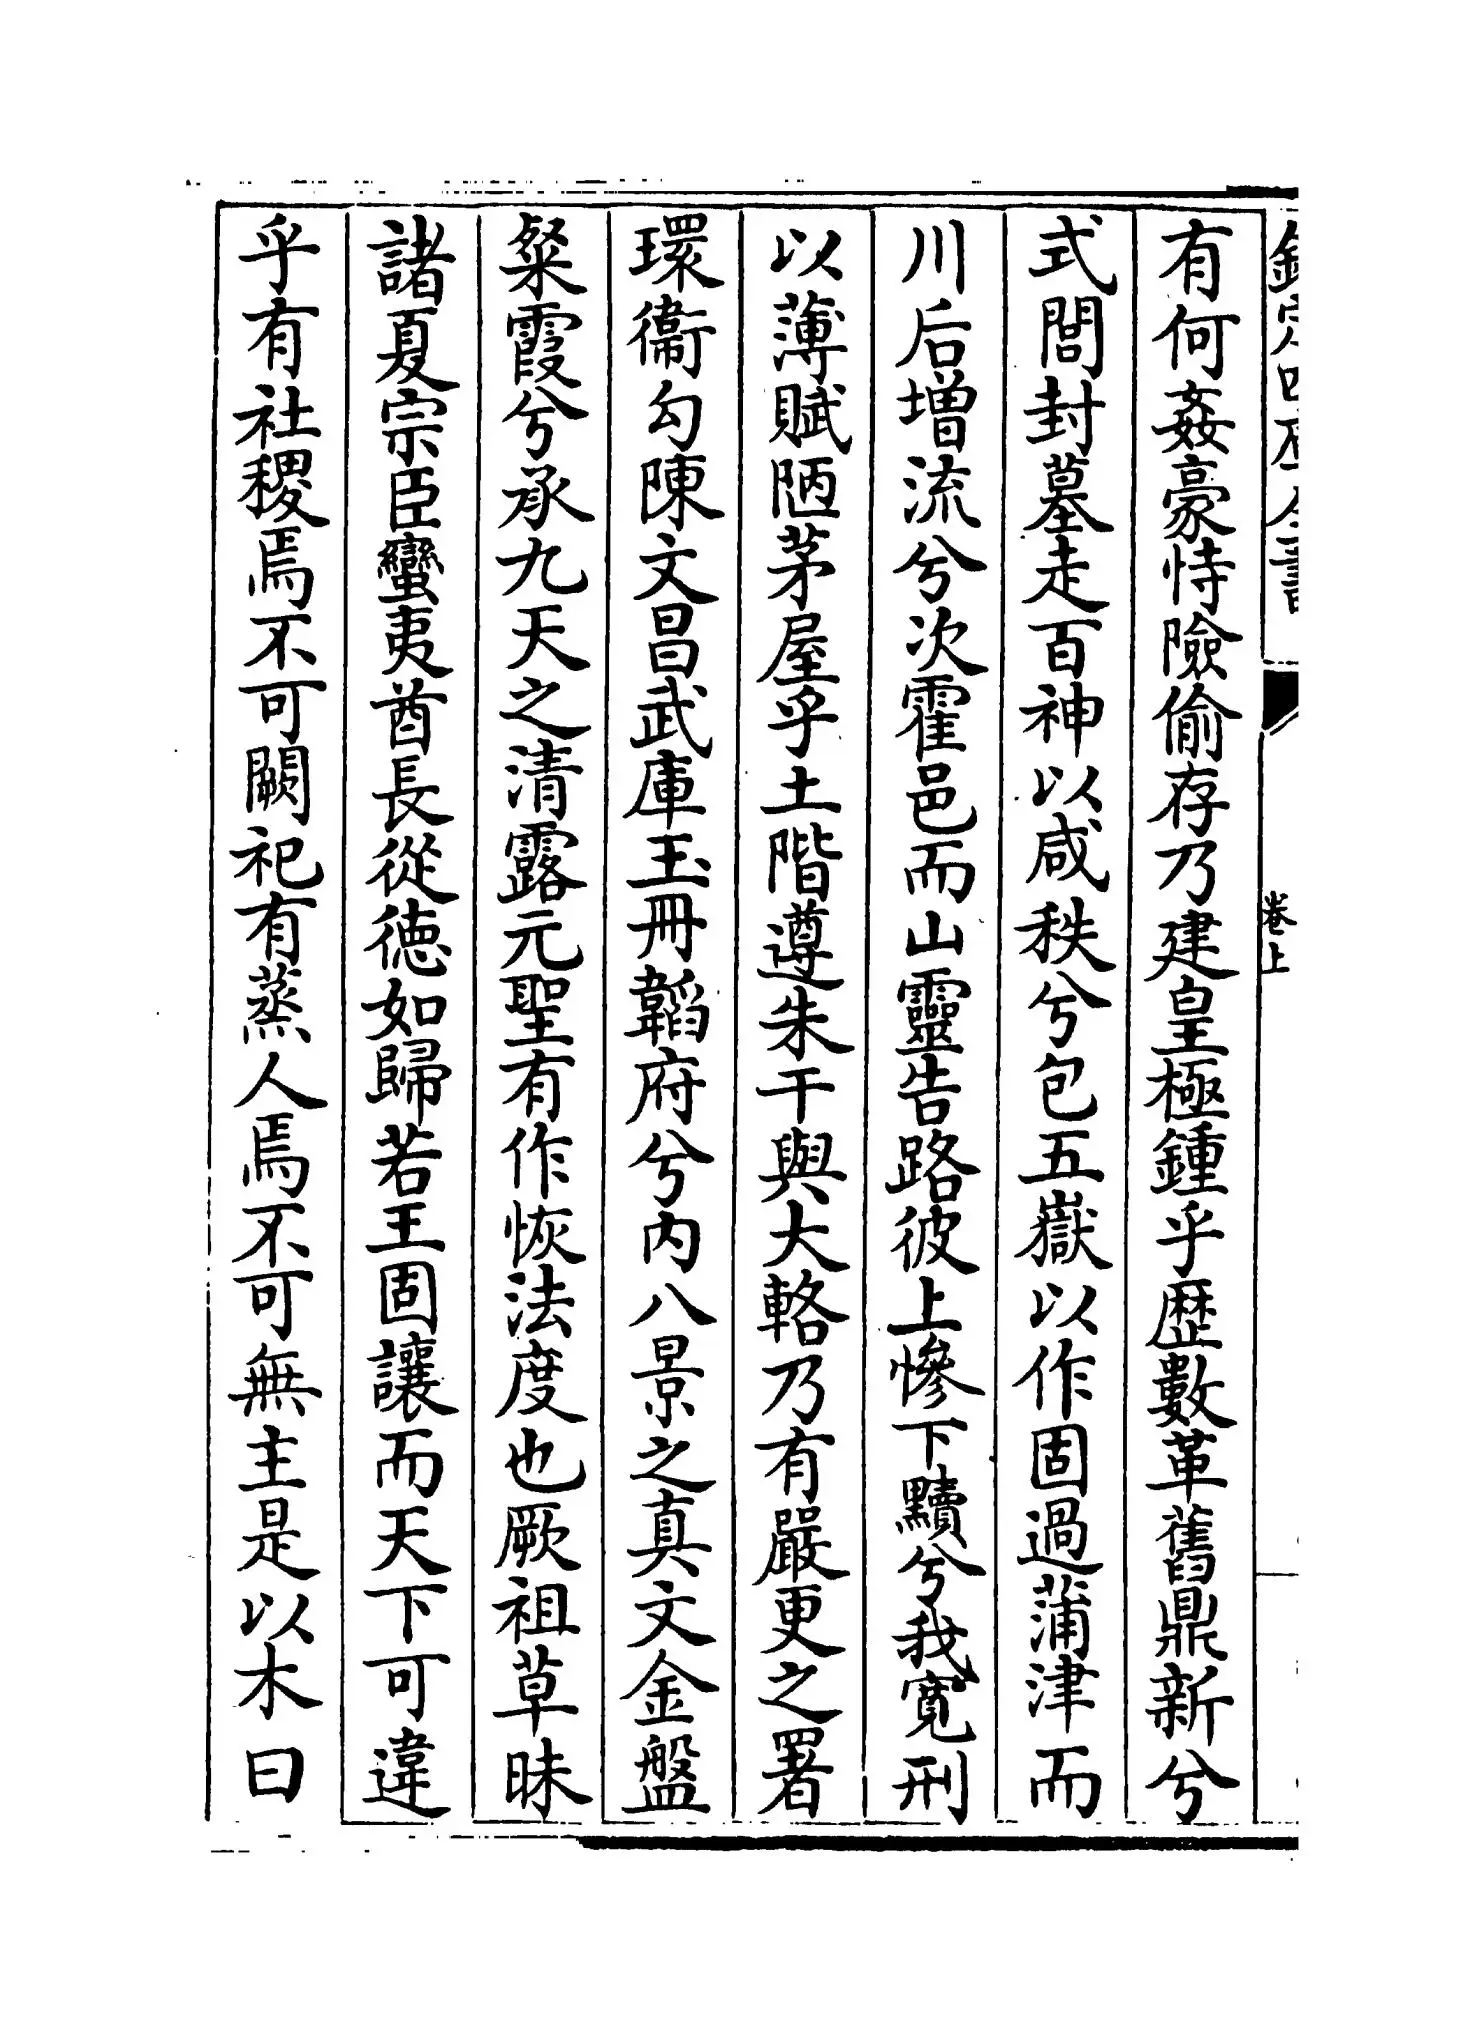 欽定四庫全書
卷上
有何姦豪恃險偷存乃建皇極鍾乎歴數革舊鼎新兮
式閭封墓走百神以咸秩兮包五嶽以作固過蒲津而
川后增流兮次霍邑而山靈告路彼上慘下黷兮我寛刑
以薄賦陋茅屋乎土階遵朱干與大輅乃有嚴更之署
環衞勾陳文昌武庫玉冊韜府兮内八景之真文金盤
粲霞兮承九天之清露元聖有作恢法度也厥祖草昧
諸夏宗臣蠻夷酋長從徳如歸若王固讓而天下可違
乎有社稷焉不可闕祀有蒸人焉不可無主是以木曰